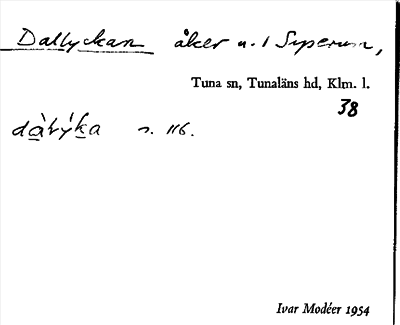 Dallyckan åker n. 1 Siperum,
Tuna sn, Tunaläns hd, Klm. l.
38
dàlýka s. 116.
Ivar Modéer 1954